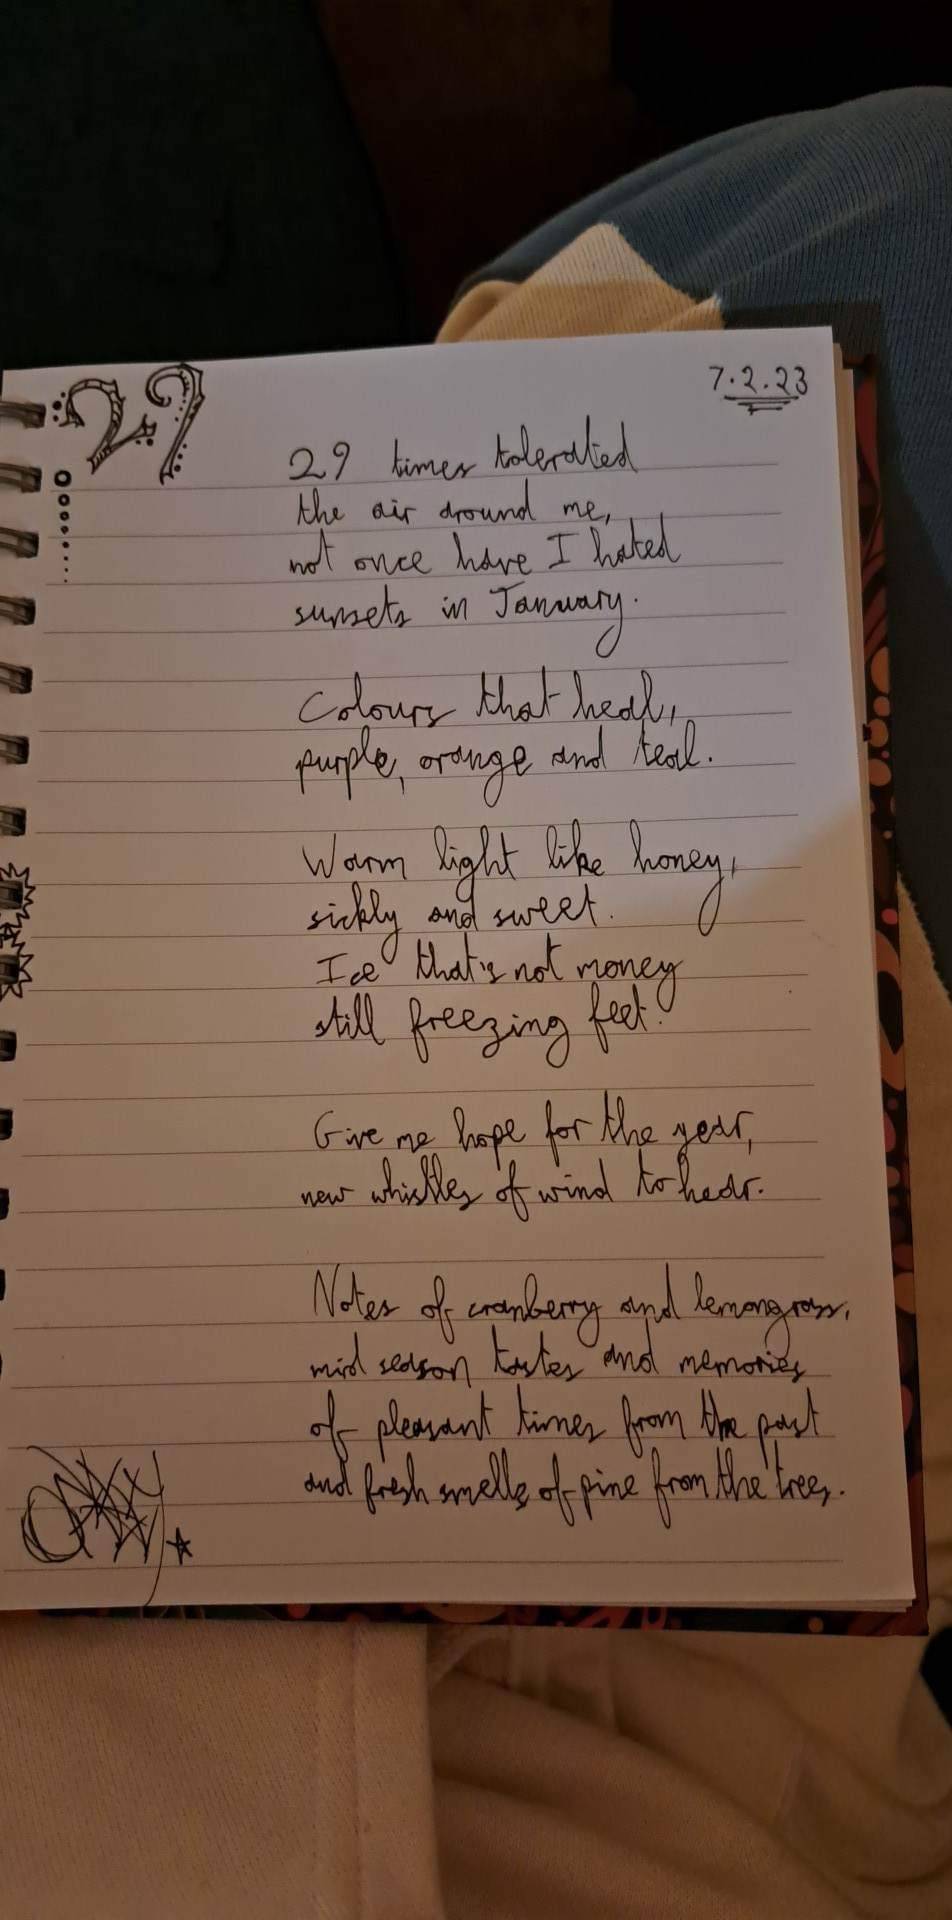 29
7.2.23
29 times tolerated
the air around me,
not once have I hated
sunsets in January.
Colours that heal,
purple, orange and teal.
Warm light like honey,
sickly and sweet.
Ice that's not money
still freezing feet.
Give me hope for the year,
new whistles of wind to hear.
Notes of cranberry and lemongrass,
mid season tastes and memories
of pleasant times from the past
and fresh smells of pine from the trees.